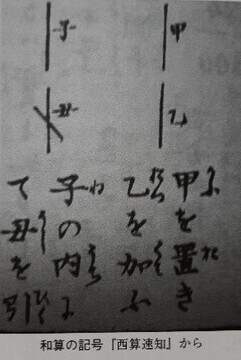 甲
乙
子
丑
甲を置き
乙を加ふ
子の内に
て丑を引
和算の記号『西算速知』から